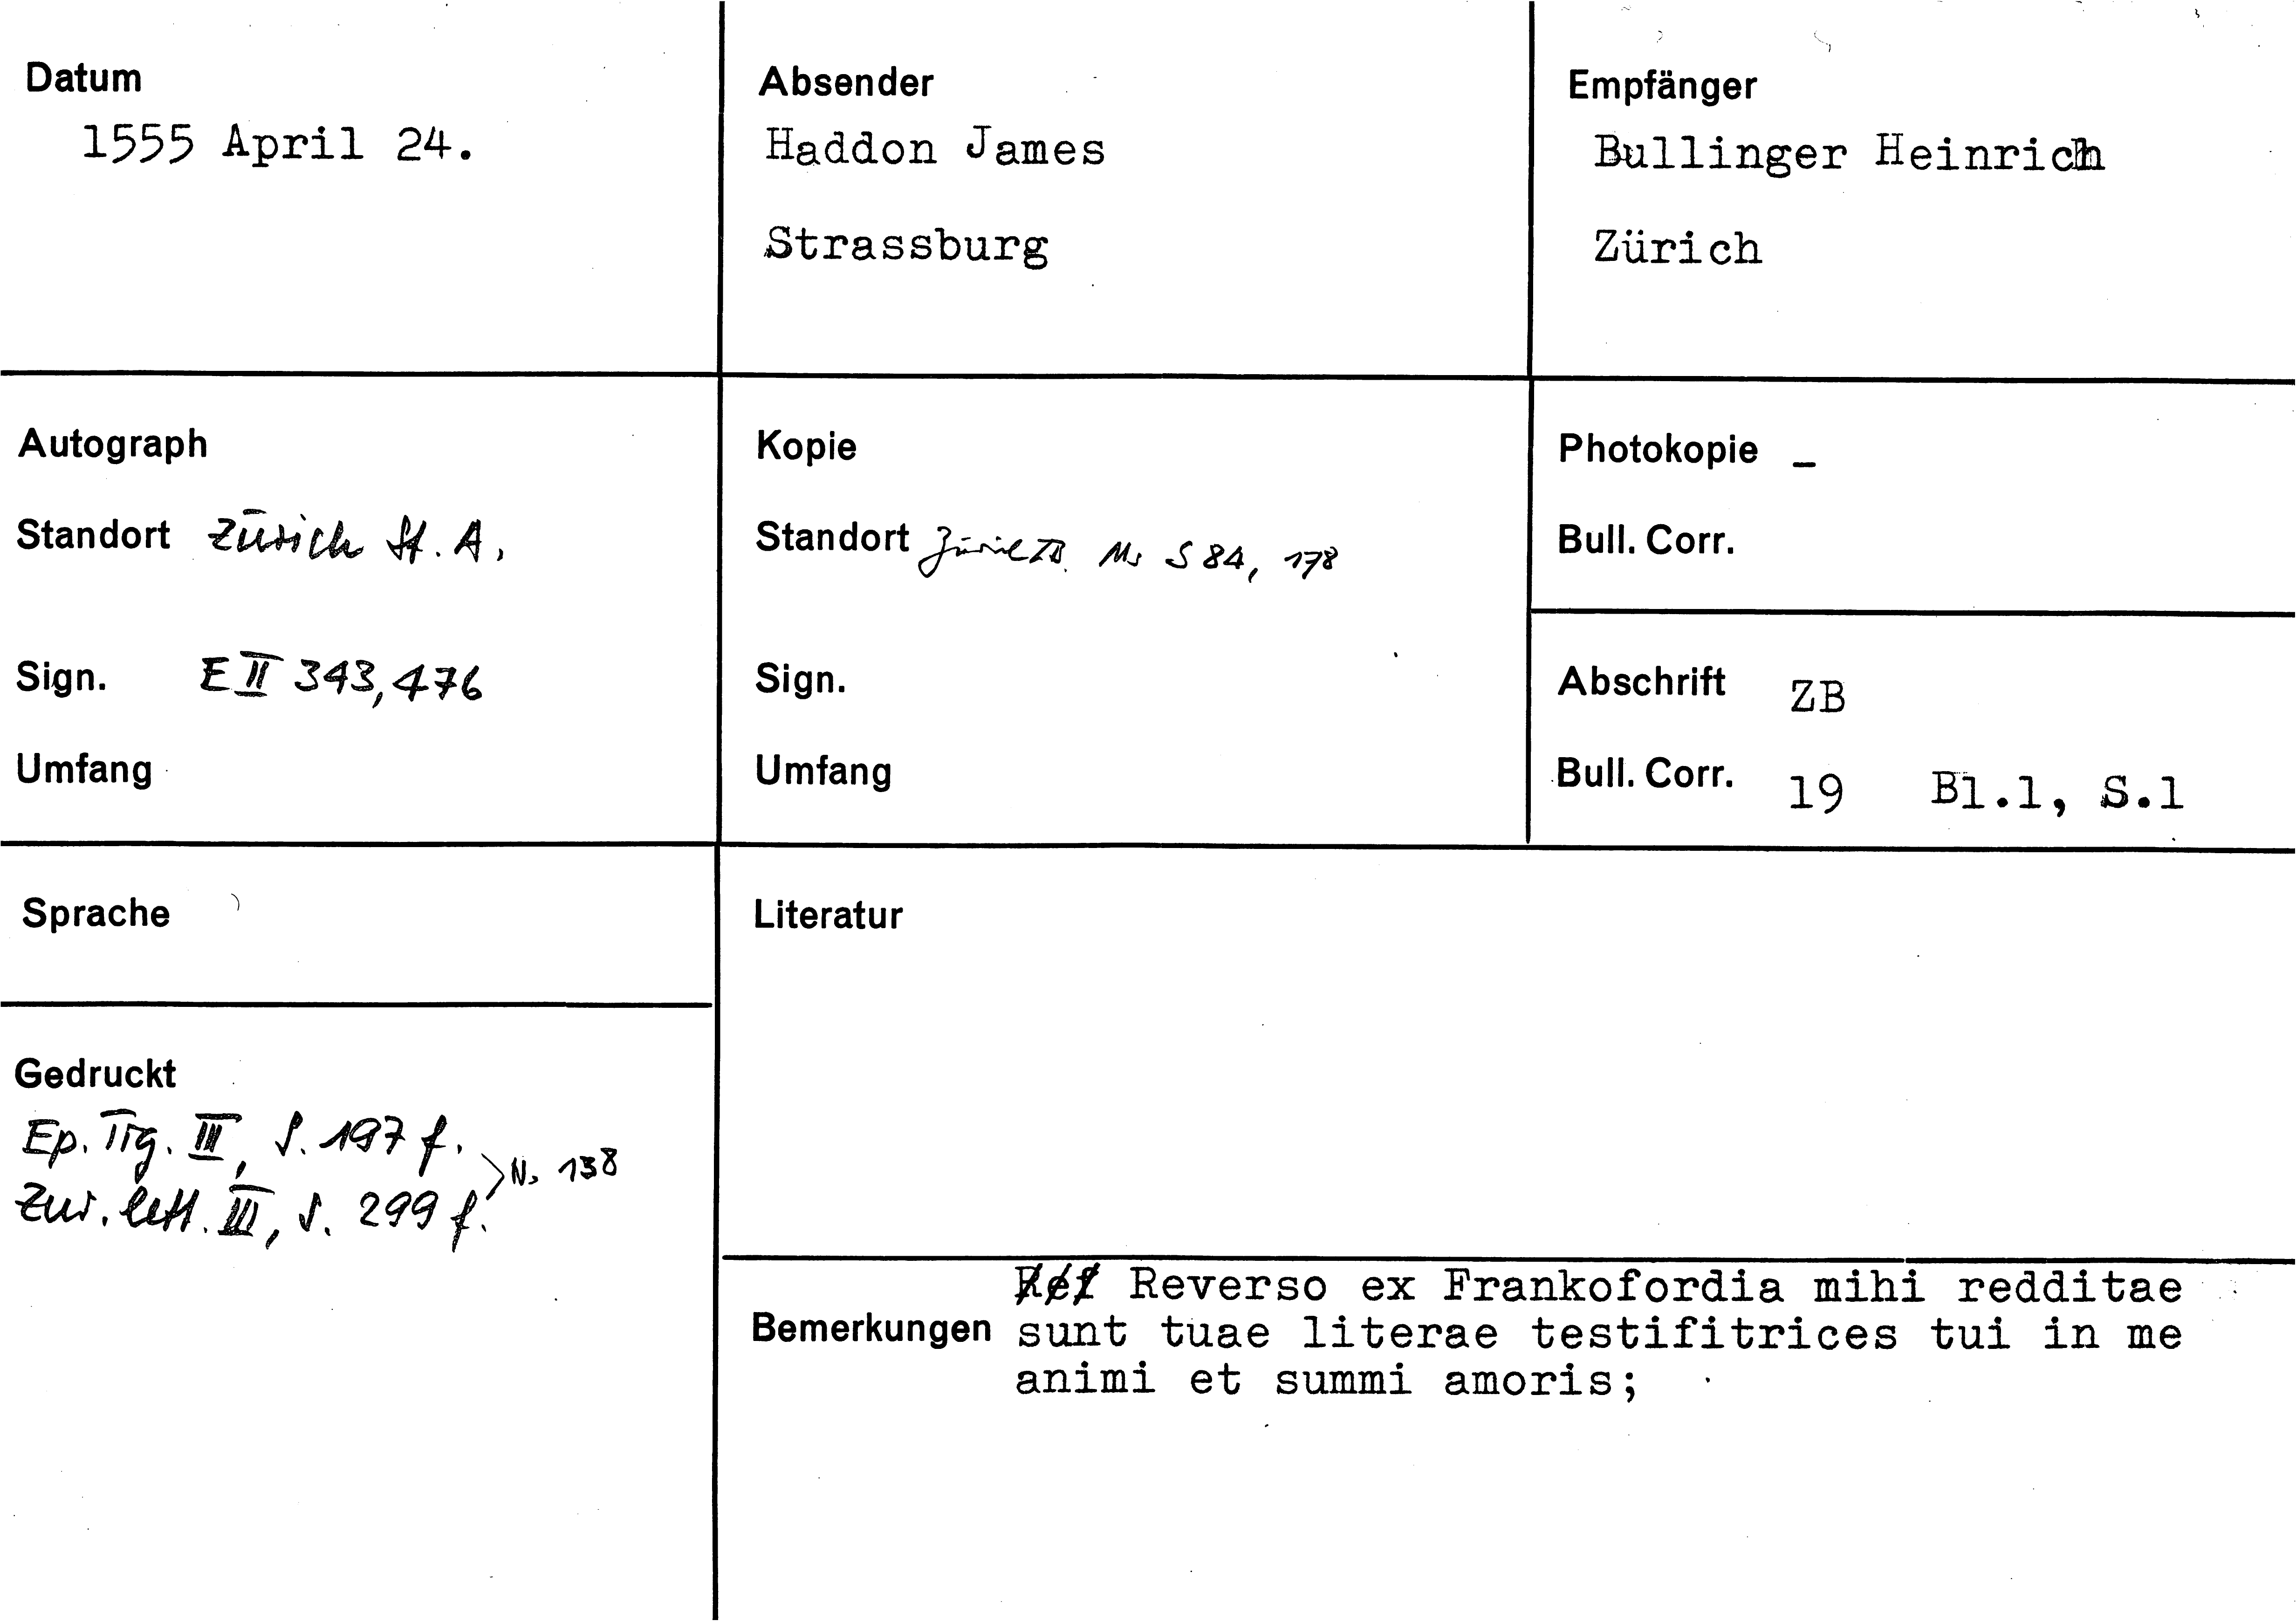 Datum
1555 April 24.
Absender
Haddon James
Strassburg
Empfänger
Bullinger Heinrich
Zürich
Autograph
Standort Zürich St. A.
Sign. E II 343, 476
Umfang
Kopie
Standort Zürich ZB. Ms S 84, 178
Sign.
Umfang
Photokopie –
Bull. Corr.
Abschrift ZB
Bull. Corr. 19 Bl.1, S.1
Sprache
Gedruckt
Ep. Tig. III, S. 197 f.
Zur. lett. III, S. 299 f.
No 138
Literatur
Bemerkungen
Reverso ex Frankofordia mihi redditae
sunt tuae literae testifitrices tui in me
animi et summi amoris;